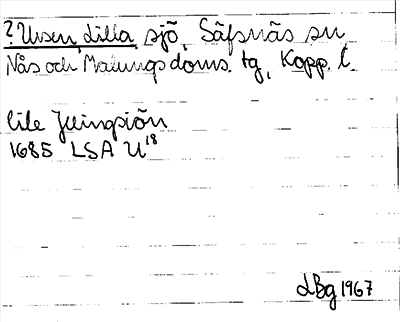 ? Ulvsen, Lilla, sjö, Säfsnäs sn
Nås och Malungs doms. tg, Kopp. l.
lile
1685 LSA U18
LBg 1967